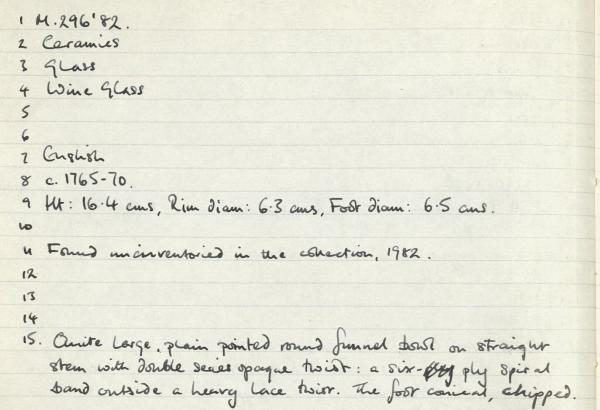 1 M.296'82.
2 Ceramics
3 Glass
4 Wine Glass
5
6
7 English
8 c. 1765-70.
9 Ht: 16.4 cms, Rim diam: 6.3 cms, Foot diam: 6.5 cms.
10
11 Found uninventoried in the collection, 1982.
12
13
14
15. Quite large, plain pointed round funnel bowl on straight
stem with double series opaque twist: a six- ply spiral
band outside a heavy lace twist. The foot conical, chipped.